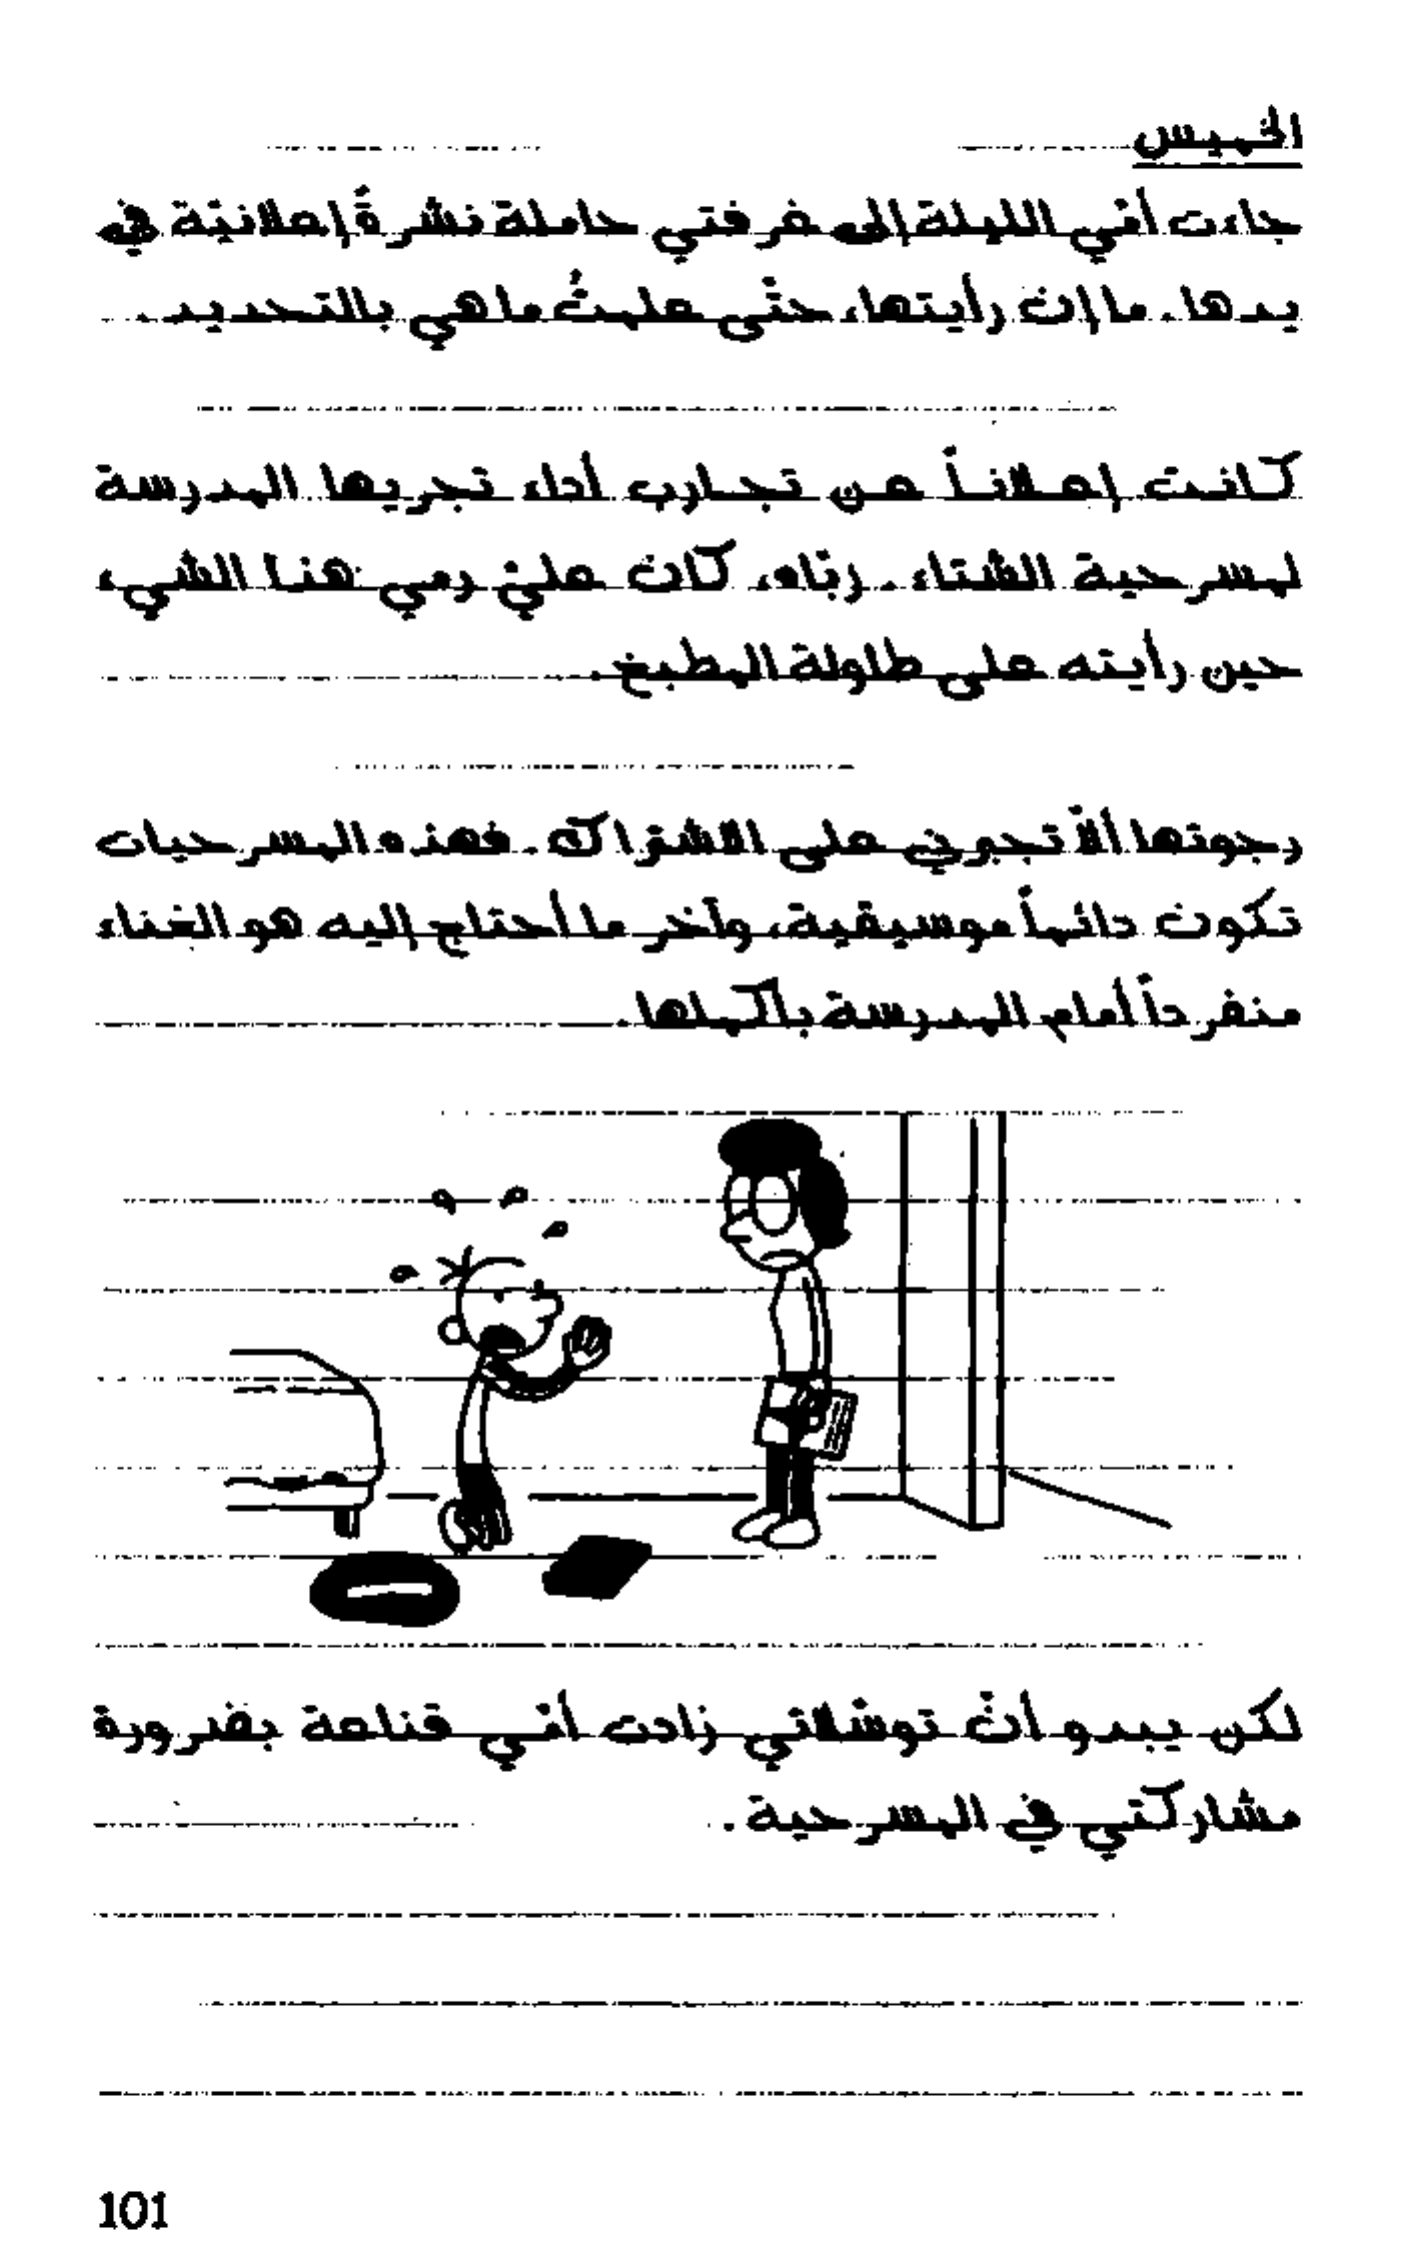 الخميس
جاءت أمّي الليلة إلى غرفتي حاملة نشرةً إعلانيّة في
يدها. ما إن رأيتها، حتّى علمتُ ما هي بالتحديد.
كانت إعلاناً عن تجارب أداء تجريها المدرسة
لمسرحية الشتاء. ربّاه، كان عليّ رمي هذا الشيء
حين رأيته على طاولة المطبخ.
رجوتها ألاّ تجبرني على الاشتراك. فهذه المسرحيات
تكون دائماً موسيقية، وآخر ما أحتاج إليه هو الغناء
منفرداً أمام المدرسة بأكملها.
لكن يبدو أنّ توسّلاتي زادت أمّي قناعة بضرورة
مشاركتي في المسرحية.
101